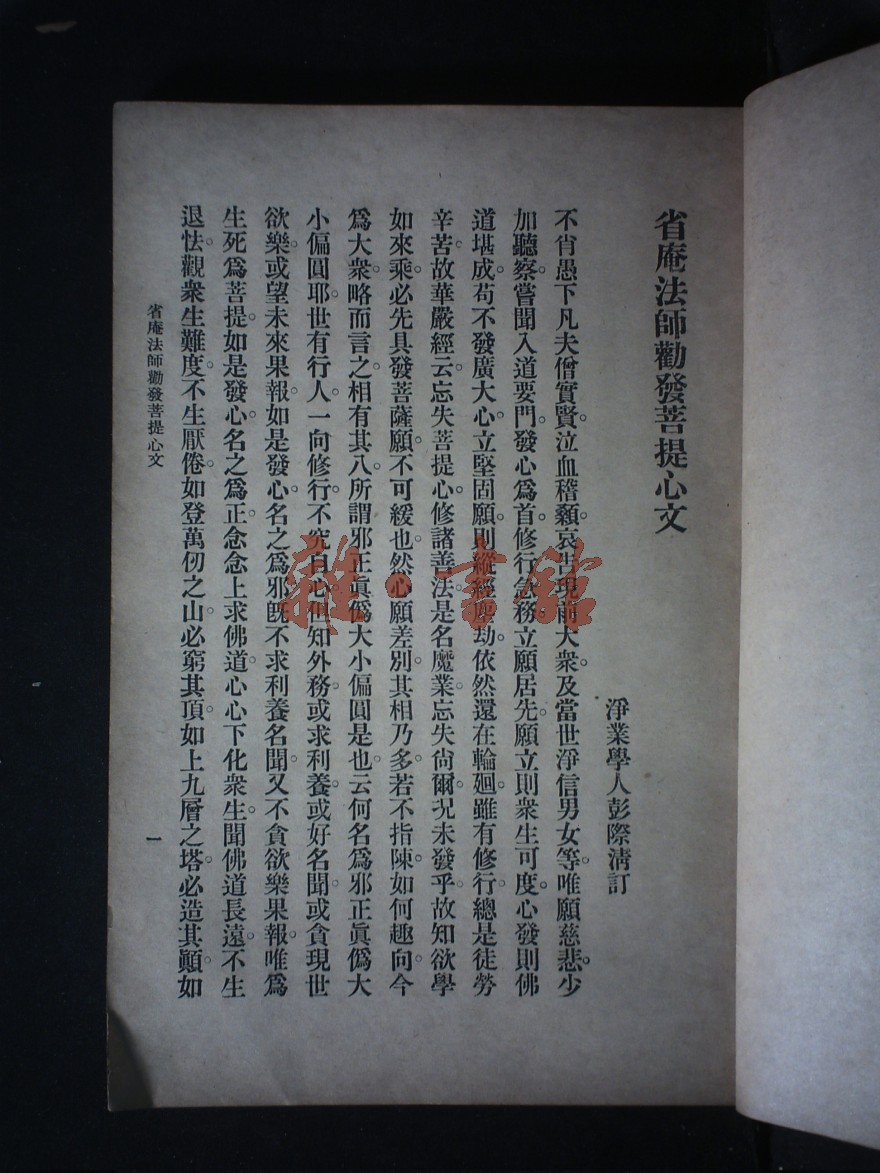 省庵法師勸發菩提心文
淨業學人彭際淸訂
不肖愚下凡夫僧實賢。泣血稽顙。哀吿現前大衆。及當世淨信男女等。唯願慈悲。少
加聽察。嘗聞入道要門。發心爲首。修行急務。立願居先。願立則衆生可度。心發則佛
道堪成。苟不發廣大心。立堅固願。則縱經塵劫。依然還在輪廻。雖有修行。總是徒勞
辛苦。故華嚴經云。忘失菩提心。修諸善法。是名魔業。忘失尙爾。況未發乎。故知欲學
如來乘。必先具發菩薩願。不可緩也。然心願差別。其相乃多。若不指陳。如何趣向。今
爲大衆略而言之。相有其八。所謂邪正眞僞大小偏圓是也。云何名爲邪正眞僞大
小偏圓耶。世有行人。一向修行。不究自心。但知外務。或求利養。或好名聞。或貪現世
欲樂。或望未來果報。如是發心。名之爲邪。旣不求利養名聞。又不貪欲樂果報。唯爲
生死。爲菩提。如是發心。名之爲正。念念上求佛道。心心下化衆生。聞佛道長遠。不生
退怯。觀衆生難度。不生厭倦。如登萬仞之山。必窮其頂。如上九層之塔。必造其顚。如
省庵法師勸發菩提心文
一
雜·書館